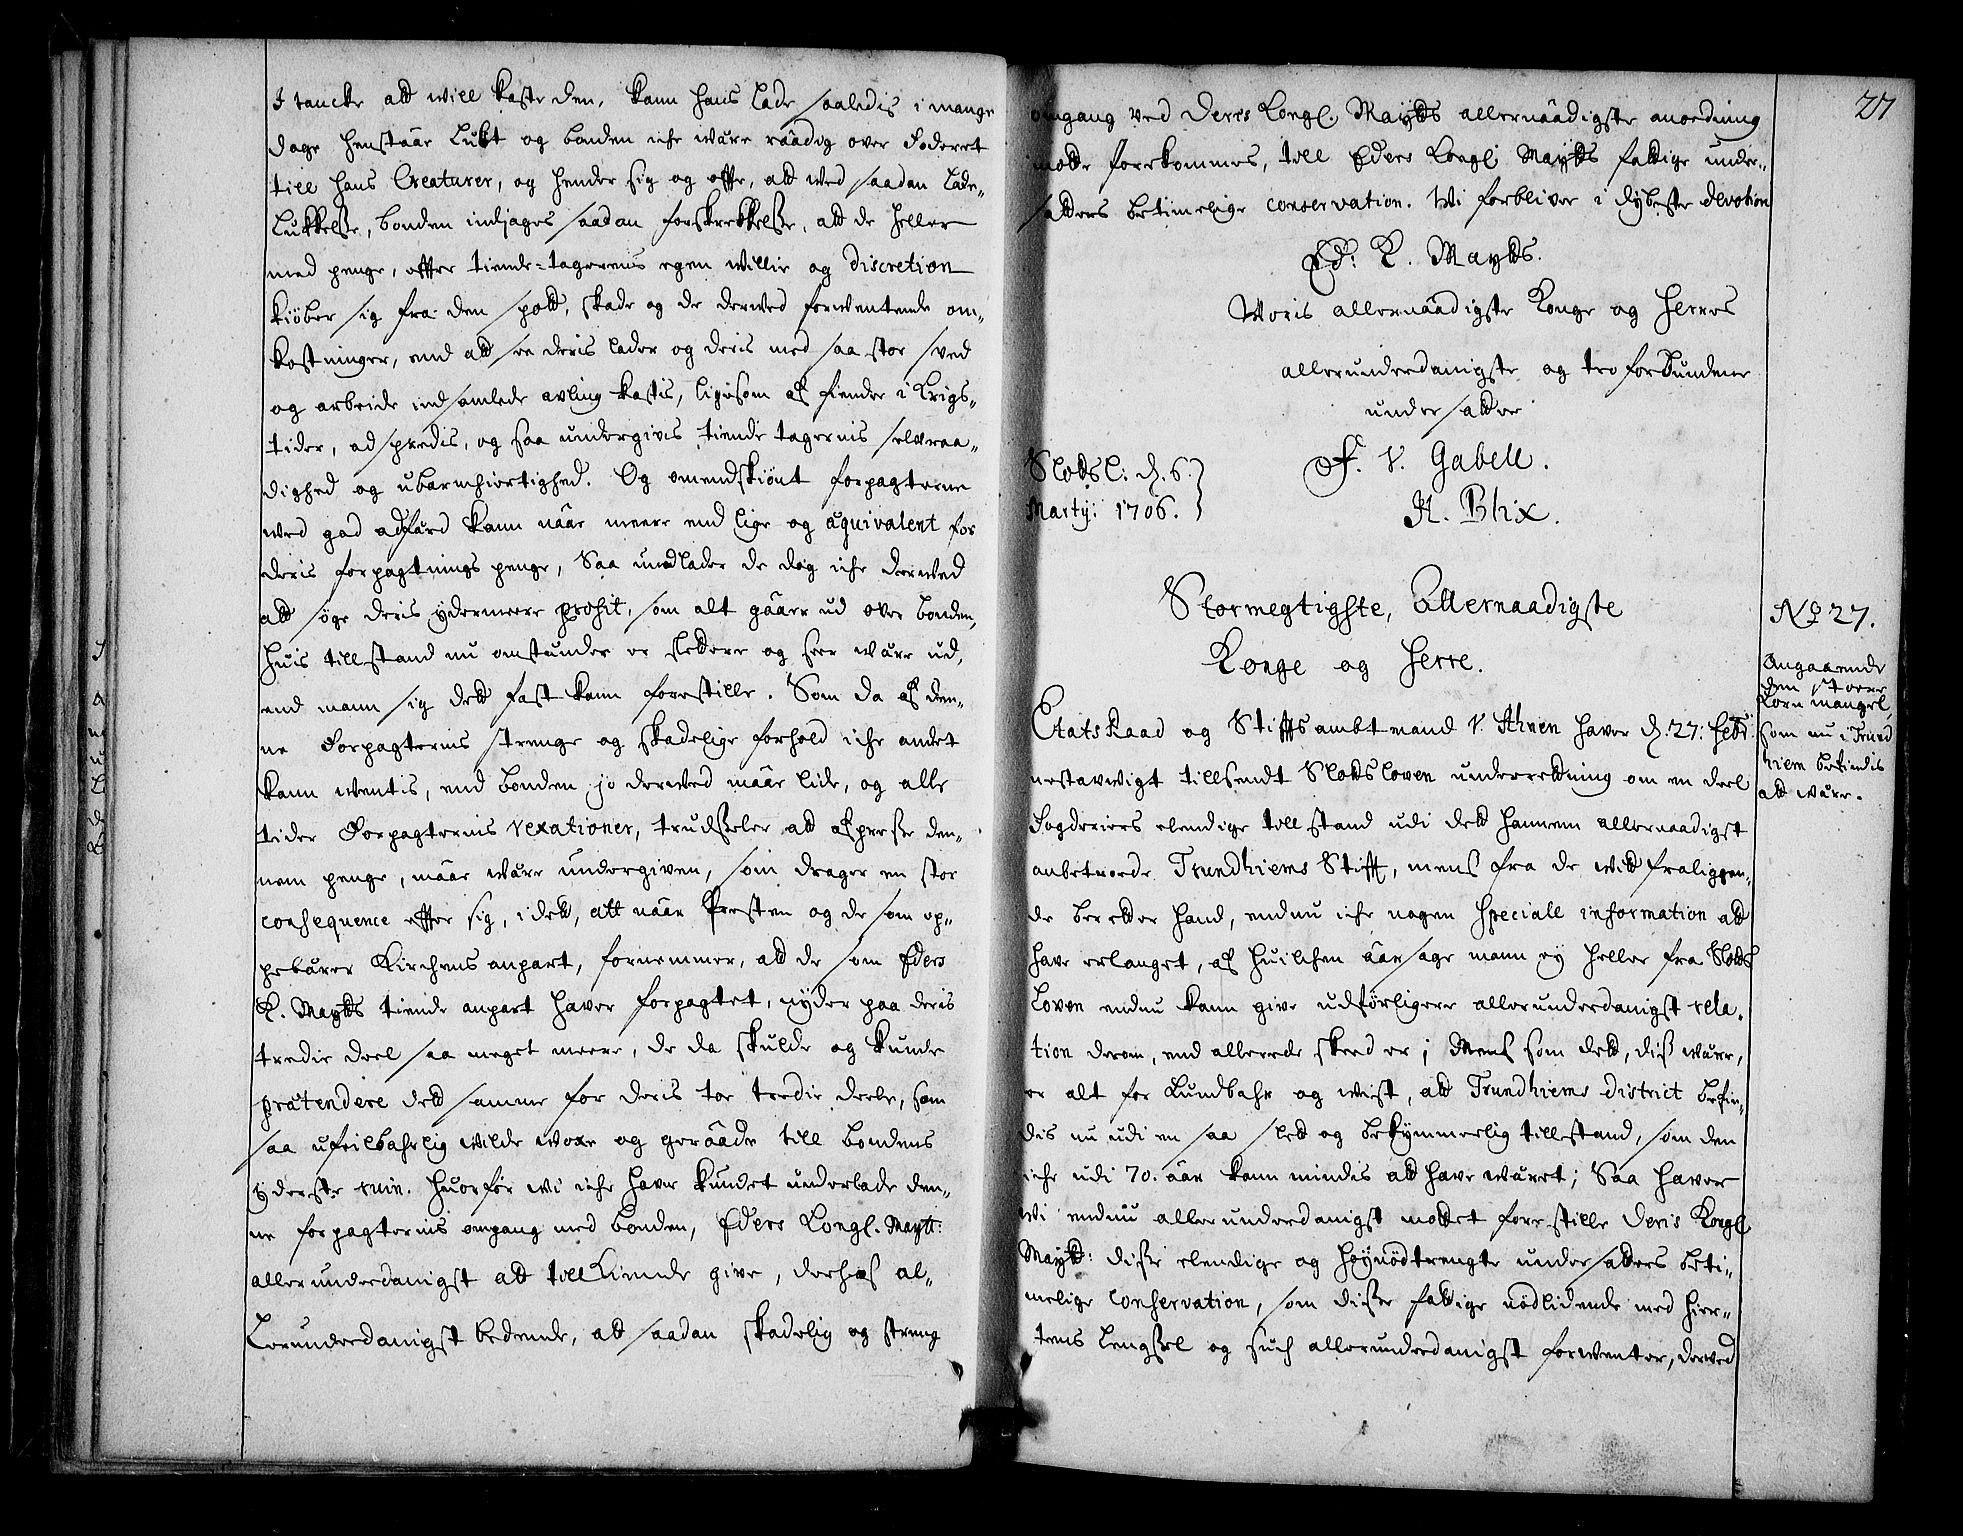 I tancke att will kaste den, kann hans lade saaledis i mange
dage henstaar lukt og bonden icke være raadig over foderet
till hans Creaturer, og hender sig og offte, att wed saadan lade-
lukkelsse, bonden indjages saadan forskrekkelsse, att de heller
med penge, effter tiende-tagerens egen willie og discretion
kiøber sig fra den spott, skade og de derwed forwentende om-
kostninger, end att see deris lader og deris med saa stor sved
og arbeide indsamlede avling kastis, ligesom af fiender i Krigs-
tider, adspredis, og saa undergives tiende tagernis selvraa-
dighed og ubarmhiertighed. Og omendskiønt forpagterne
wed god adfærd kann naae meere end lige og æquivalent for
deris forpagtnings penge, Saa undlader de dog icke derwed
att søge deris ydermeere profit, som alt gaaer ud over bonden,
huis tillstand nu omstunder er slettere og seer værre ud,
end mann sig dett fast kann forestille. Som da af den-
ne Forpagternis strenge og skadelige forhold icke andet
kann wentis, end bonden jo derwed maae lide, og alle
tider Forpagternis vexationer, trudsseler att afpresse den-
nem penge, maae være undergiven, som drager en stor
consequence effter sig, i dett, att naar Presten og de som op-
pebærer Kirchens anpart, fornemmer, att de som Eders
K. Maytts tiende anpart haver forpagtet, nyder paa deris
tredie deel saa meget meere, de da skulde og kunde
prætendere dett samme for deris toe tredie deele, som
saa ufeilbahrlig wilde voxe og geraade till bondens
yderste ruin. Huorfor wi icke haver kundet underlade den-
ne forpagternis omgang med bonden, Eders Kongl. Maytt:
allerunderdanigst att tillkiende give, derhos al-
lerunderdanigst bedende, att saadan skadelig og streng
27
omgang ved Deres Kongl. Maytts allernaadigste anordning
motte forekommes, till Eders Kongl: Maytts fattige under-
satters betimelige conservation. Wi forbliver i dybeste devotion
Ed: K. Maytts.
Woris allernaadigste Konge og Herres
allerunderdanigste og tro forbundene
undersatter
Slotsl: d. 6.
F. V. Gabell.
Martij: 1706.
H. Blix.
Stormegtigste, Allernaadigste
Konge og Herre.
No 27.
Angaaende
den stoere
Korn mangel,
som nu i Trund
hiem befindis
att være.
EtatsRaad og Stifftsambtmand V. Ahnen haver d. 27: Febr:
nestavvigt tillsendt Slotsloven underretning om en deel
Fogderiers elendige tillstand udi dett hannem allernaadigst
anbetroede Trundhiems Stifft, mens fra de wiit fraliggen-
de beretter hand, endnu icke nogen speciale information att
have erlanget, af huilchen aarsage mann ey heller fra Slots
Loven endnu kann give udførligere allerunderdanigst rela-
tion derom, end allerede skeed er; Mens som dett, diss værre,
er alt for kundbahr og wist, att Trundhiems district befin-
dis nu udi en saa slett og bekymmerlig tillstand, som den
icke udi 70. aar kann mindis att have været; Saa haver
wi endnu allerunderdanigst mottet forestille Deris Kongl
Maytt: disse elendige og høynødtrengte undersatters beti-
melige conservation, som disse fattige nødlidende med hier-
tens lengssel og such allerunderdanigst forwenter, derved